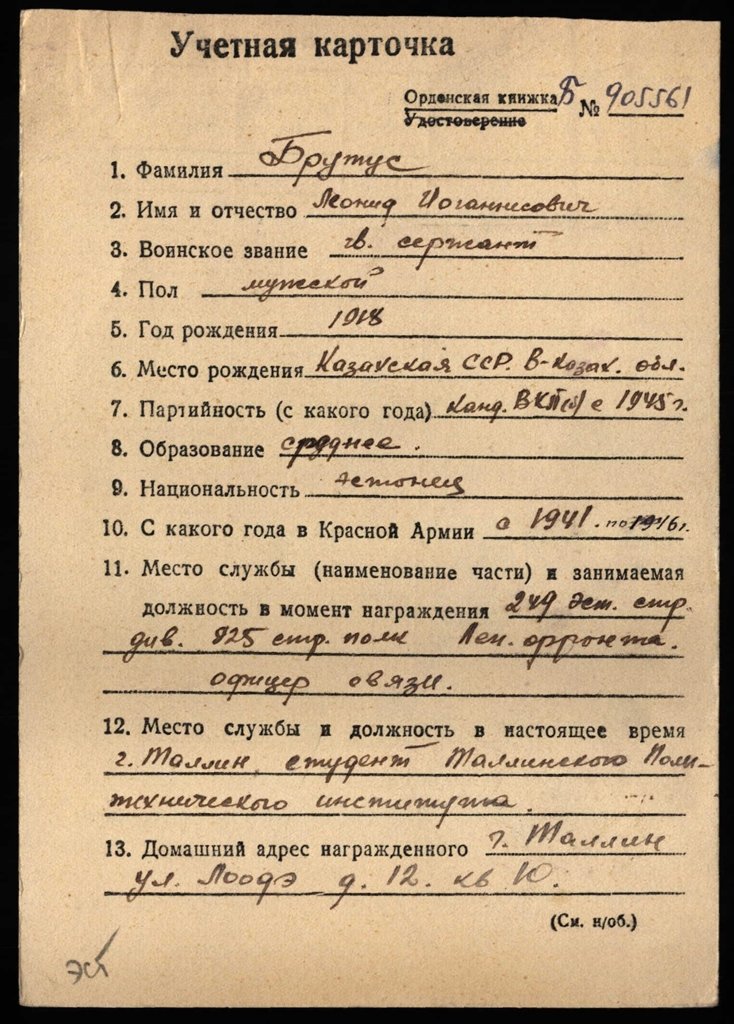 Учетная карточка
Орденская книжка Б № 905561
Удостоверение
1. Фамилия Брутус
2. Имя и отчество Леонид Иоганнесович
3. Воинское звание гв. сержант
4. Пол мужской
5. Год рождения 1918
6. Место рождения Казахская ССР. В-Казах. обл.
7. Партийность (с какого года) Канд. ВКП(б) с 1945 г.
8. Образование среднее.
9. Национальность эстонец
10. С какого года в Красной Армии с 1941. по 1946 г.
11. Место службы (наименование части) и занимаемая
должность в момент награждения 249 эст. стр.
див. 925 стр. полк Лен. фронта.
офицер связи.
12. Место службы и должность в настоящее время
г. Таллин, студент Таллинского Поли-
технического института.
13. Домашний адрес награжденного г. Таллин
ул. Лоодэ д. 12. кв
(См. н/об.)
эст